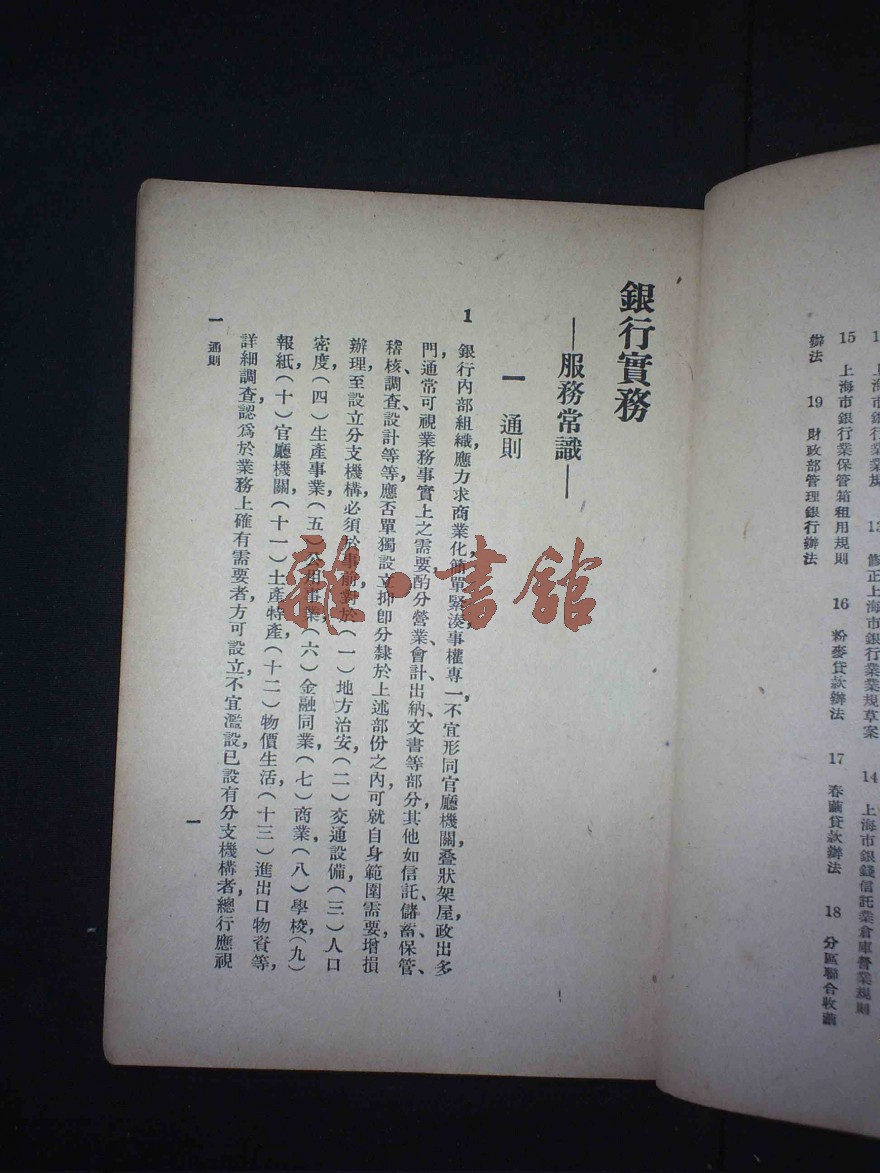 上海市銀行業業規 13 修正上海市銀行業業規草案 14 上海市銀錢信託業倉庫營業規則
15 上海市銀行業保管箱租用規則 16 粉麥貸款辦法 17 春繭貸款辦法 18 分區聯合收繭
辦法 19 財政部管理銀行辦法
銀行實務
—服務常識—
一 通則
1 銀行內部組織，應力求商業化，簡單緊湊，事權專一，不宜形同官廳機關，疊狀架屋，政出多
門，通常可視業務事實上之需要，酌分營業、會計、出納、文書等部分，其他如信託、儲蓄、保管、
稽核、調查、設計等等，應否單獨設立，抑卽分隸於上述部份之內，可就自身範圍需要增損
辦理，至設立分支機構，必須於事前對於（一）地方治安，（二）交通設備，（三）人口
密度，（四）生產事業，（五）公用事業，（六）金融同業，（七）商業，（八）學校，（九）
報紙，（十）官廳機關，（十一）土產特產，（十二）物價生活，（十三）進出口物資等，
詳細調查，認爲於業務上確有需要者，方可設立，不宜濫設，已設有分支機構者，總行應視
一 通則
一
雜·書館